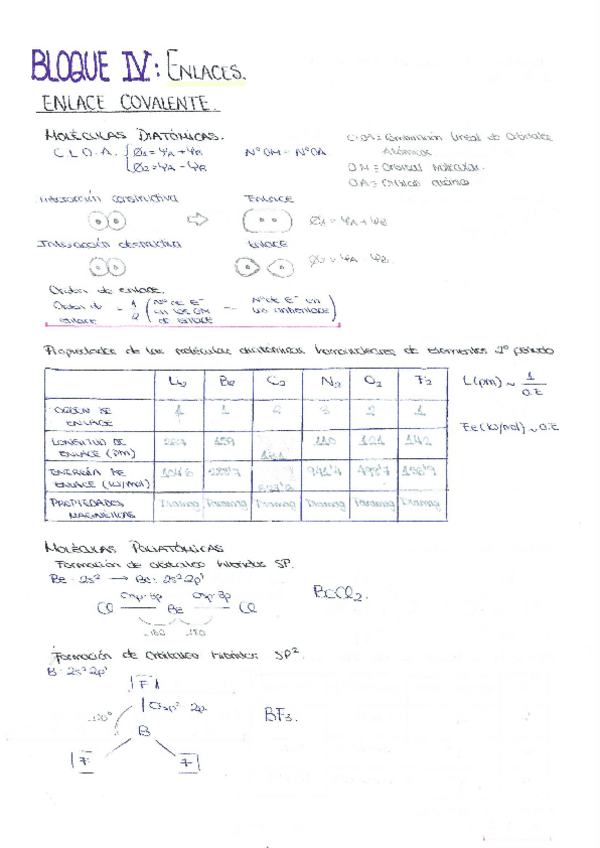 BLOQUE IV: ENLACES.
ENLACE COVALENTE.
MOLÉCULAS DIATÓMICAS.
C.L.O.A. { Ø1 = ΨA + ΨB
Ø2 = ΨA - ΨB
NºOM = NºOA
C.L.O.A = Combinación lineal de Orbitales Atómicos
O.M = Orbital molecular.
OA = Orbital atómico
Interacción constructiva
Enlace
Ø1 = ΨA + ΨB
Interacción destructiva
Enlace
Ø2 = ΨA - ΨB
Orden de enlace.
Orden de enlace = 1/2 ( Nº de E⁻ en los OM de enlace - Nº de E⁻ en los antienlace )
Propiedades de las moléculas diatómicas homonucleares de elementos 2º periodo
Li2 Be C2 N2 O2 F2
ORDEN DE ENLACE 1 1 2 3 2 1
LONGITUD DE ENLACE (pm) 267 159 131 110 121 142
ENERGÍA DE ENLACE (kJ/mol)
PROPIEDADES MAGNÉTICAS Diamag Paramag Diamag Diamag Paramag Diamag
L(pm) ~ 1/O.E
Ee(kJ/mol) ~ O.E
MOLÉCULAS POLIATÓMICAS
Formación de orbitales híbridos SP.
Be: 2s² → Be: 2s¹2p¹
Cl Be Cl
180 180
BeCl2.
Formación de Orbitales híbridos SP².
B: 2s²2p¹
F
120°
B
F F
BF3.